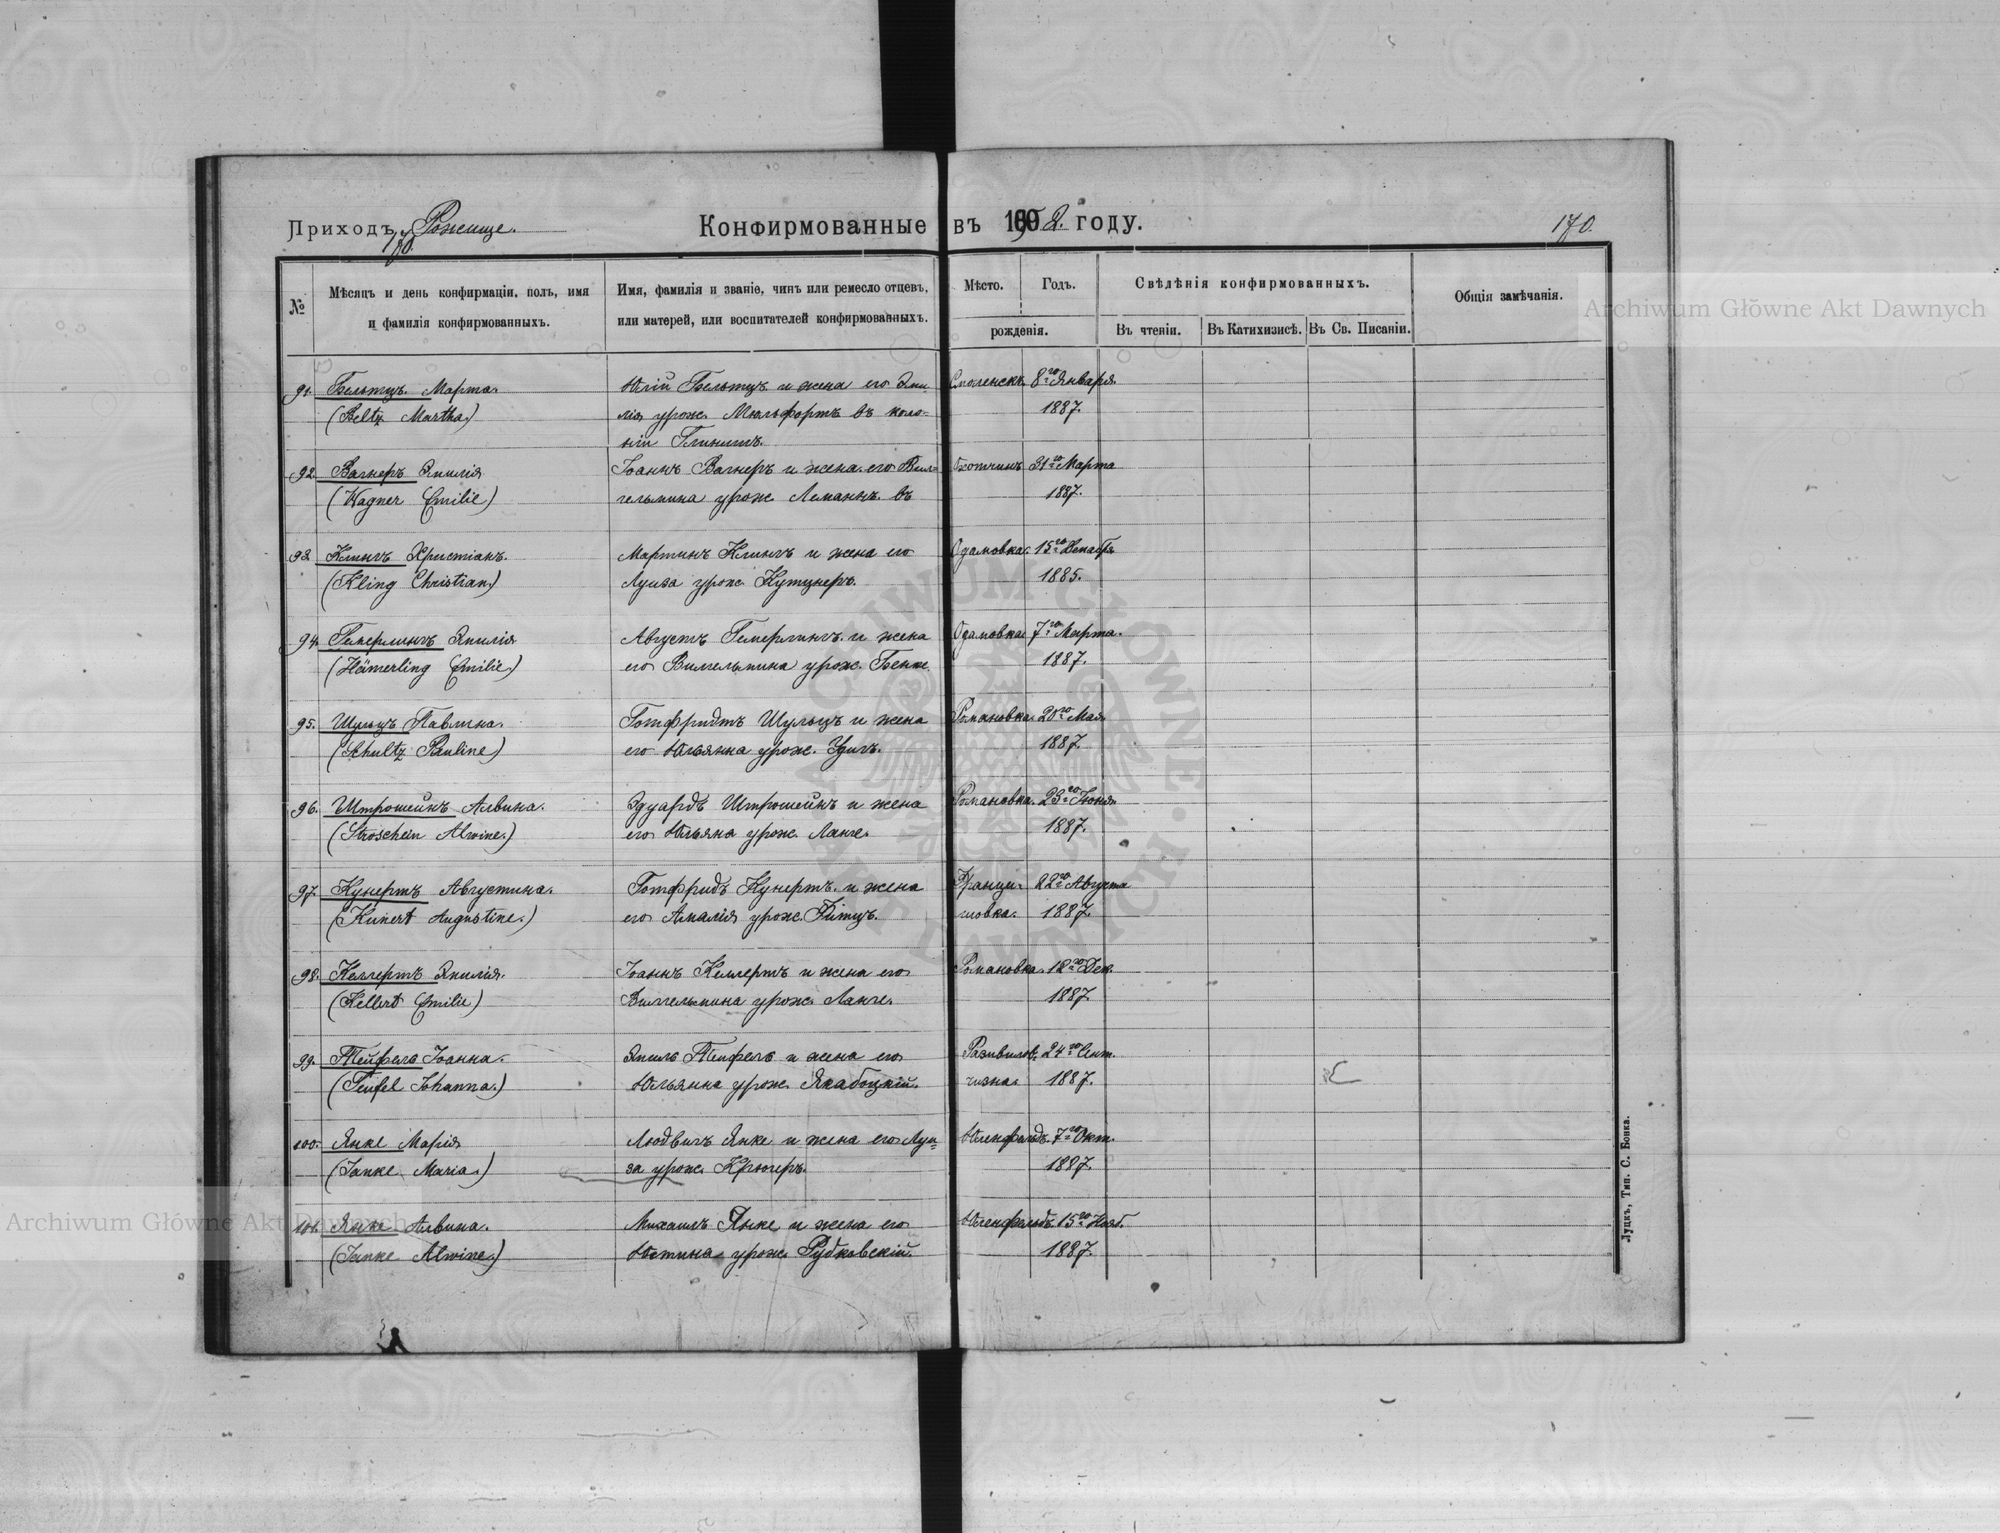 Приходъ Рожище.
170.
Конфирмованные въ 1902. году.
170.
№
Мѣсяцъ и день конфирмаціи, полъ, имя
и фамилія конфирмованныхъ.
Имя, фамилія и званіе, чинъ или ремесло отцевъ,
или матерей, или воспитателей конфирмованныхъ.
Мѣсто. Годъ.
рожденія.
Свѣдѣнія конфирмованныхъ.
Въ чтеніи. Въ Катихизисѣ. Въ Св. Писаніи.
Общія замѣчанія.
91. Бельтцъ Марта. Юлій Бельтцъ и жена его Эми- Смоленскъ 8го Января
(Beltz Martha) лія урож. Мюльфортъ въ коло- 1887.
ніи
92. Вагнеръ Эмилія Іоаннъ Вагнеръ и жена его Вил- 31го Марта
(Wagner Emilie) гельмина урож. Леманнъ въ 1887.
93. Клингъ Христіанъ. Мартинъ Клингъ и жена его Адамовка. 15го Декабря
(Kling Christian) Луиза урож. Кутцнеръ. 1885.
94. Гемерлингъ Эмилія Августъ Гемерлингъ и жена Адамовка 7го Марта.
(Hämerling Emilie) его Вильгельмина урож. Бенке 1887.
95. Шульцъ Павлина. Готфридтъ Шульцъ и жена Романовка. 20го Мая
(Schultz Pauline) его Юльянна урож. 1887.
96. Штрошейнъ Алвина. Эдуардъ Штрошейнъ и жена Романовка. 23го Іюня
(Stroschein Alwine.) его Юльяна урож. Ланге. 1887.
97. Кунертъ Августина. Готфридъ Кунертъ и жена Франци- 22го Августа
(Kunert Augustine.) его Амалія урож. новка. 1887.
98. Келлертъ Эмилія. Іоаннъ Келлертъ и жена его Романовка. 12го Дек.
(Kellert Emilie) Вилгельмина урож. Ланге. 1887.
99. Тейфелъ Іоанна. Эмилъ Тейфелъ и жена его 24го Сент.
(Teufel Johanna.) Юльянна урож. Якабоцкій. чизна. 1887.
100. Янке Марія Людвигъ Янке и жена его Луи- Юленфельдъ. 7го Окт.
(Janke Maria) за урож. Крюгеръ. 1887.
101. Янке Алвина. Михаилъ Янке и жена его Юленфельдъ. 15го Нояб.
(Janke Alwine) Юстина урож. Рудковскій. 1887.
Луцкъ, Тип. С. Бонка.
Archiwum Główne Akt Dawnych
Archiwum Główne Akt Dawnych
ARCHIWUM GŁÓWNE AKT DAWNYCH